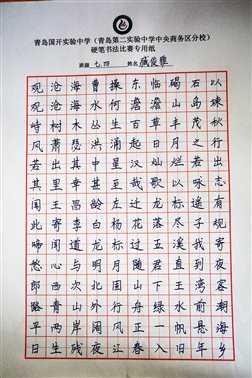 青岛国开实验中学（青岛第二实验中学中央商务区分校）
硬笔书法比赛专用纸
班级 七.四 姓名 臧俊雅
观沧海曹操东临碣石以
观沧海水何澹澹山岛竦
峙树木丛生百草丰茂秋
风萧瑟洪涌起日月之行
若出其中星汉灿烂若出
其里幸甚至哉歌以咏志
闻王昌龄左迁龙标遥有
此寄李白杨花落尽子规
啼闻道龙标过五溪我寄
愁心与明月随君直到夜
郎西次北固山下王湾客
路青山外行舟绿水前潮
平两岸阔风正一帆悬海
日生残夜江春入旧年乡